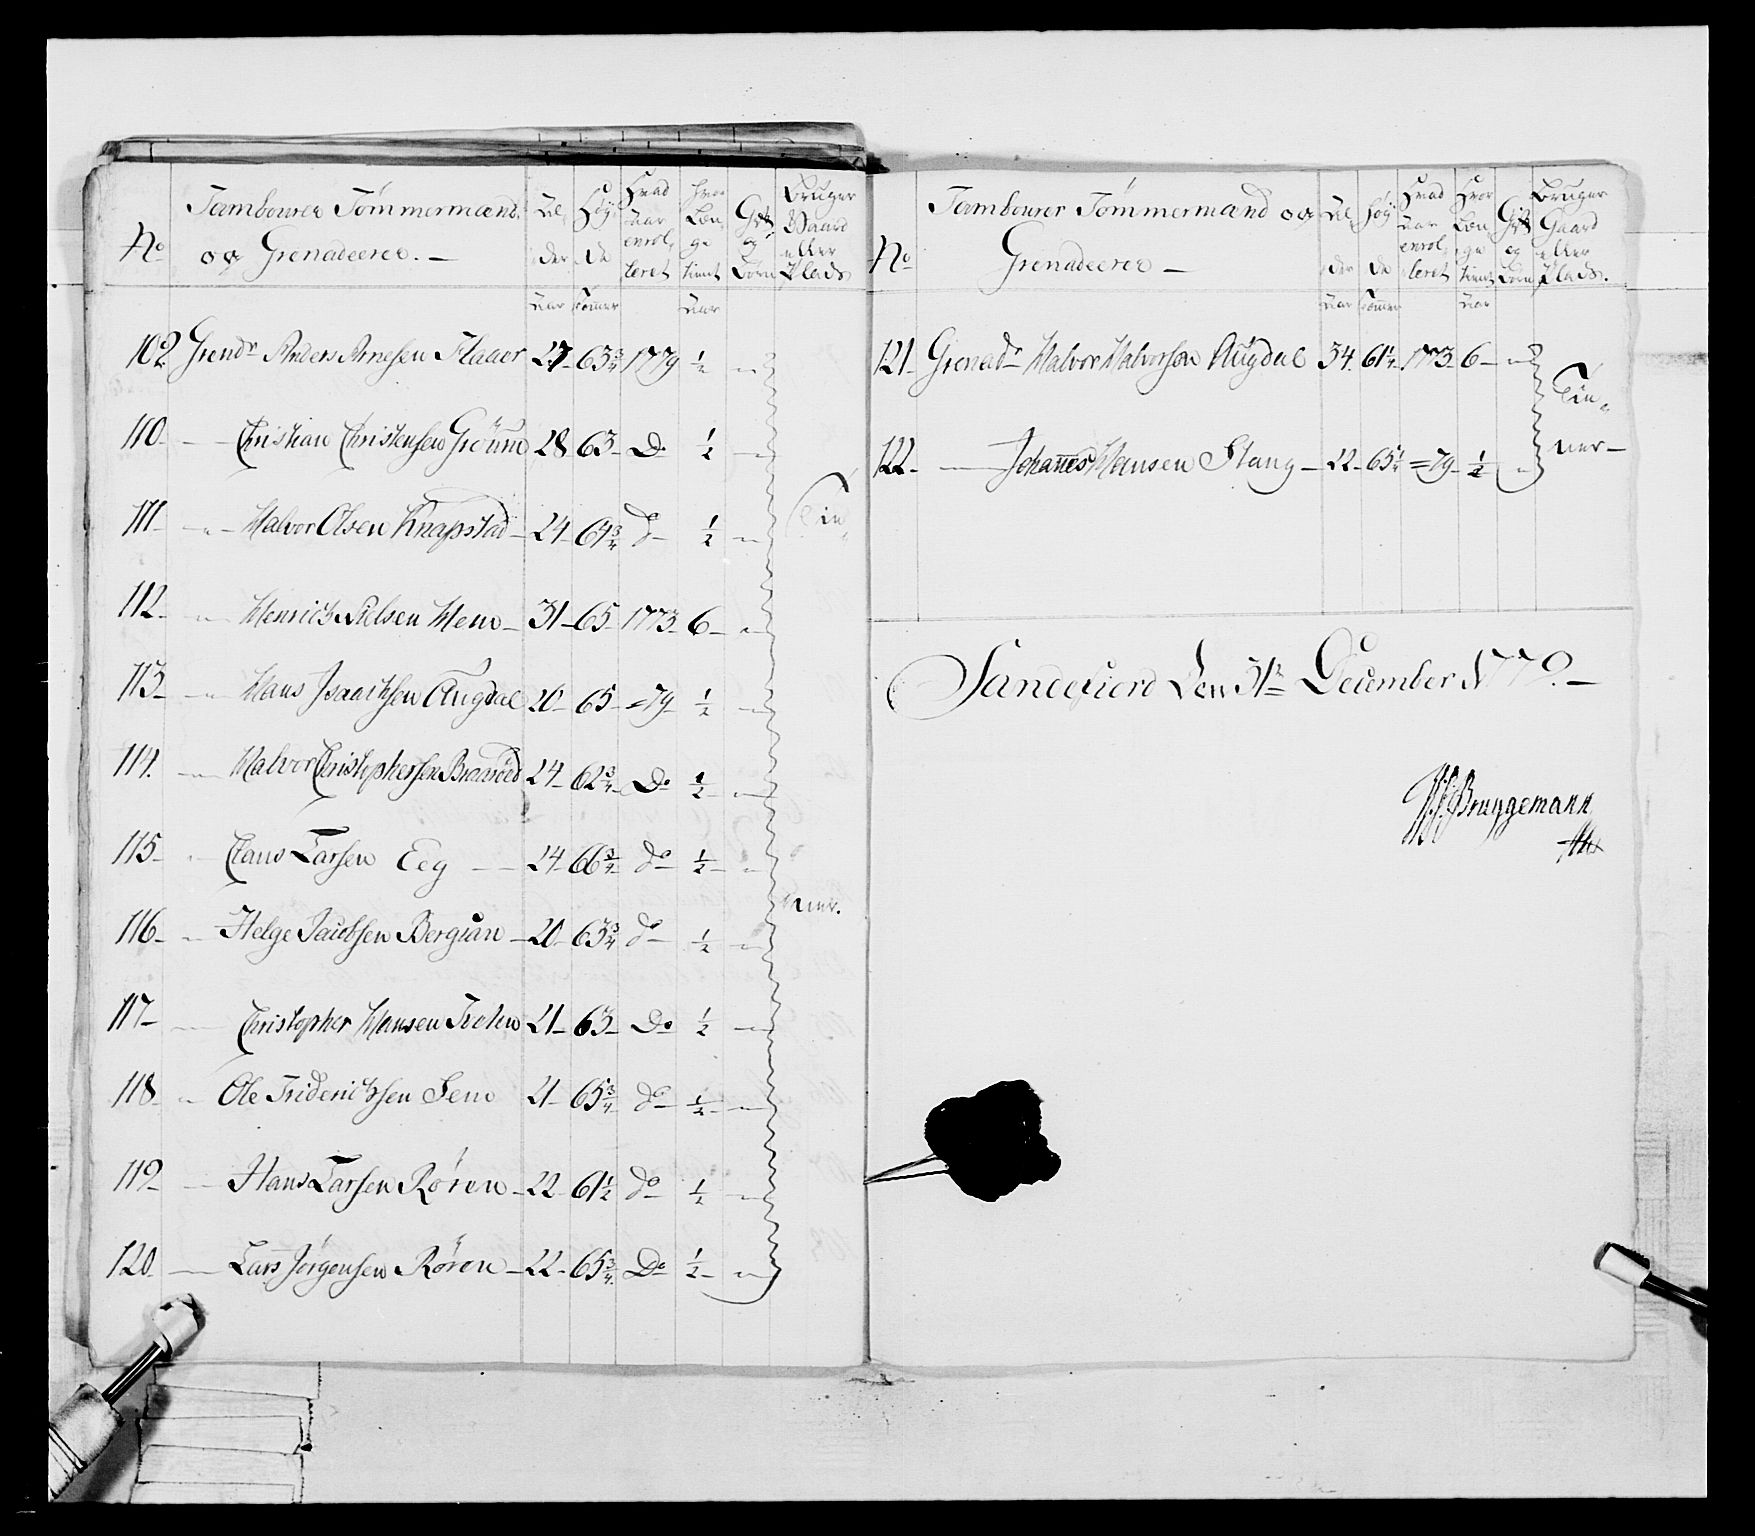 No
Tambourer Tømmermænd
og Grenadeerer. —
Al-
der
Høy-
de
Hvad
Aar
enrol-
leret
Hvor
Læn-
ge
tient
Gift
og
Børn
Bruger
Gaard
eller
Plads
Aar Tommer Aar
109 Grendr Anders Arnesen Flaaer 27 - 63 3/4 1779 1/2 "
110 — Christian Christensen Gröum 28 63 - Do 1/2 —
111 - " - Halvor Olsen Knapstad - 24 - 64 3/4 do 1/2 "
Tin-
112 - " Henrich Nielsen Hem - 31 - 65 - 1773 - 6 - "
113 - " Hans Isaachsen Augdal 20 - 65 - = 79 - 1/2 —
114. — Halvor Christophersen 24 - 62 3/4 Do 1/2 —
115 - " Hans Larsen Eeg — 24 - 66 3/4 do 1/2 - "
ner.
116 - " Helge Jacobsen Bergan - 20 - 63 3/4 do 1/2 "
117 - — Christopher Hansen Trolen 21 - 63 - Do 1/2 —
118 - " Ole Friderichsen Sem 21 - 65 3/4 do 1/2 —
119 — Hans Larsen Røren - 22 - 61 1/2 do 1/2 —
120 - — Lars Jørgensen Røren - 22 - 65 3/4 Do 1/2 - "
No
Tambourer Tømmermænd og
Grenadeerer —
Al-
der
Høy
de
Hvad
Aar
enrol-
leret
Hvor
Læn-
ge
tient
Gift
og
Børn
Bruger
Gaard
eller
Plads.
Aar Tommer Aar
121 - Grenadr Halvor Halvorsen Augdal 34. 61 1/4 - 1773 - 6 - "
Tin-
ner —
122 - — Johannes Hansen Stang - 22 - 65 1/4 = 79 - 1/2 "
Sandefiord Den 31te December 1779. —
Bruggemann